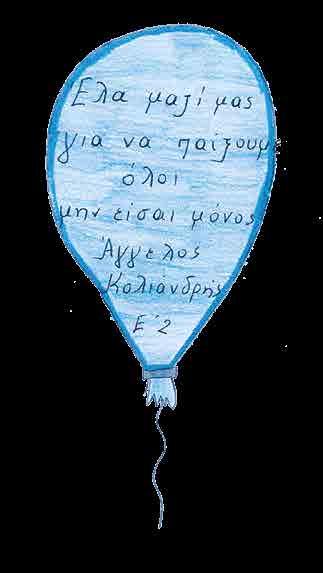 Ελα μαζί μας
για να παίξουμε
όλοι
μην είσαι μόνος
Άγγελος
Κολιάνδρης
Ε΄2